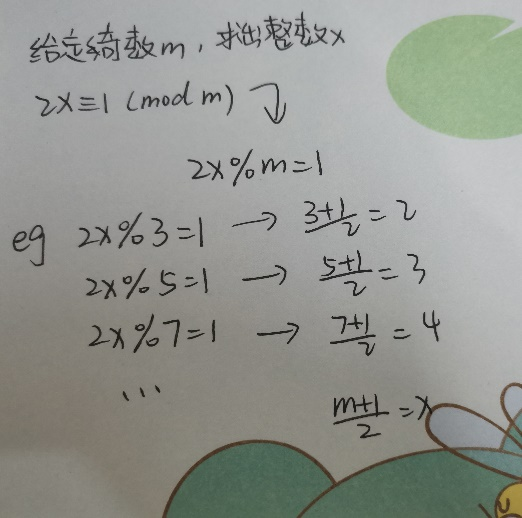 给定奇数m，求出整数x
2x≡1 (mod m)
2x%m=1
eg 2x%3=1 → (3+1)/2=2
2x%5=1 → (5+1)/2=3
2x%7=1 → (7+1)/2=4
...
(m+1)/2=x